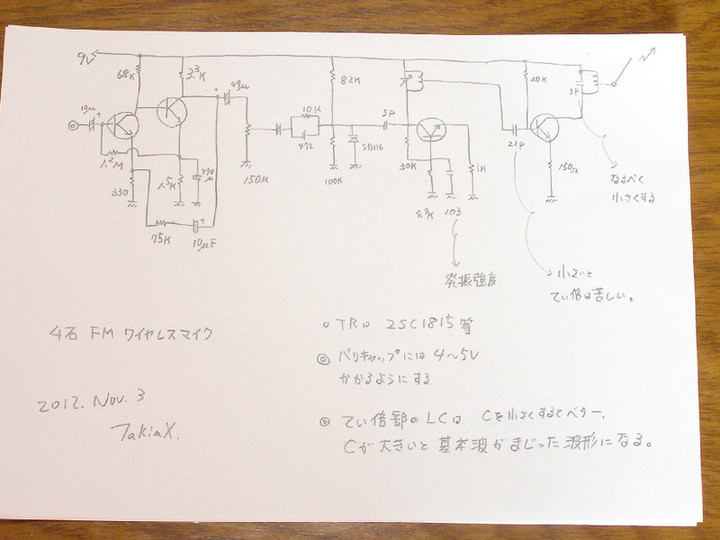 9V
68K
3.3K
47μ
82K
10K
3P
10μ
10K
5P
472
SD116
22P
1.2M
1.5K
470μ
150K
100K
30K
1K
150Ω
330
103
75K
10μF
なるべく
小さくする
発振強度
小さいと
てい倍は苦しい。
4石 FM ワイヤレスマイク
○ TRは 2SC1815等
◎ バリキャップには 4～5V
かかるようにする
2012. Nov. 3
TakinX.
◎ てい倍部のLCは、Cを小さくするとベター。
Cが大きいと基本波がまじった波形になる。